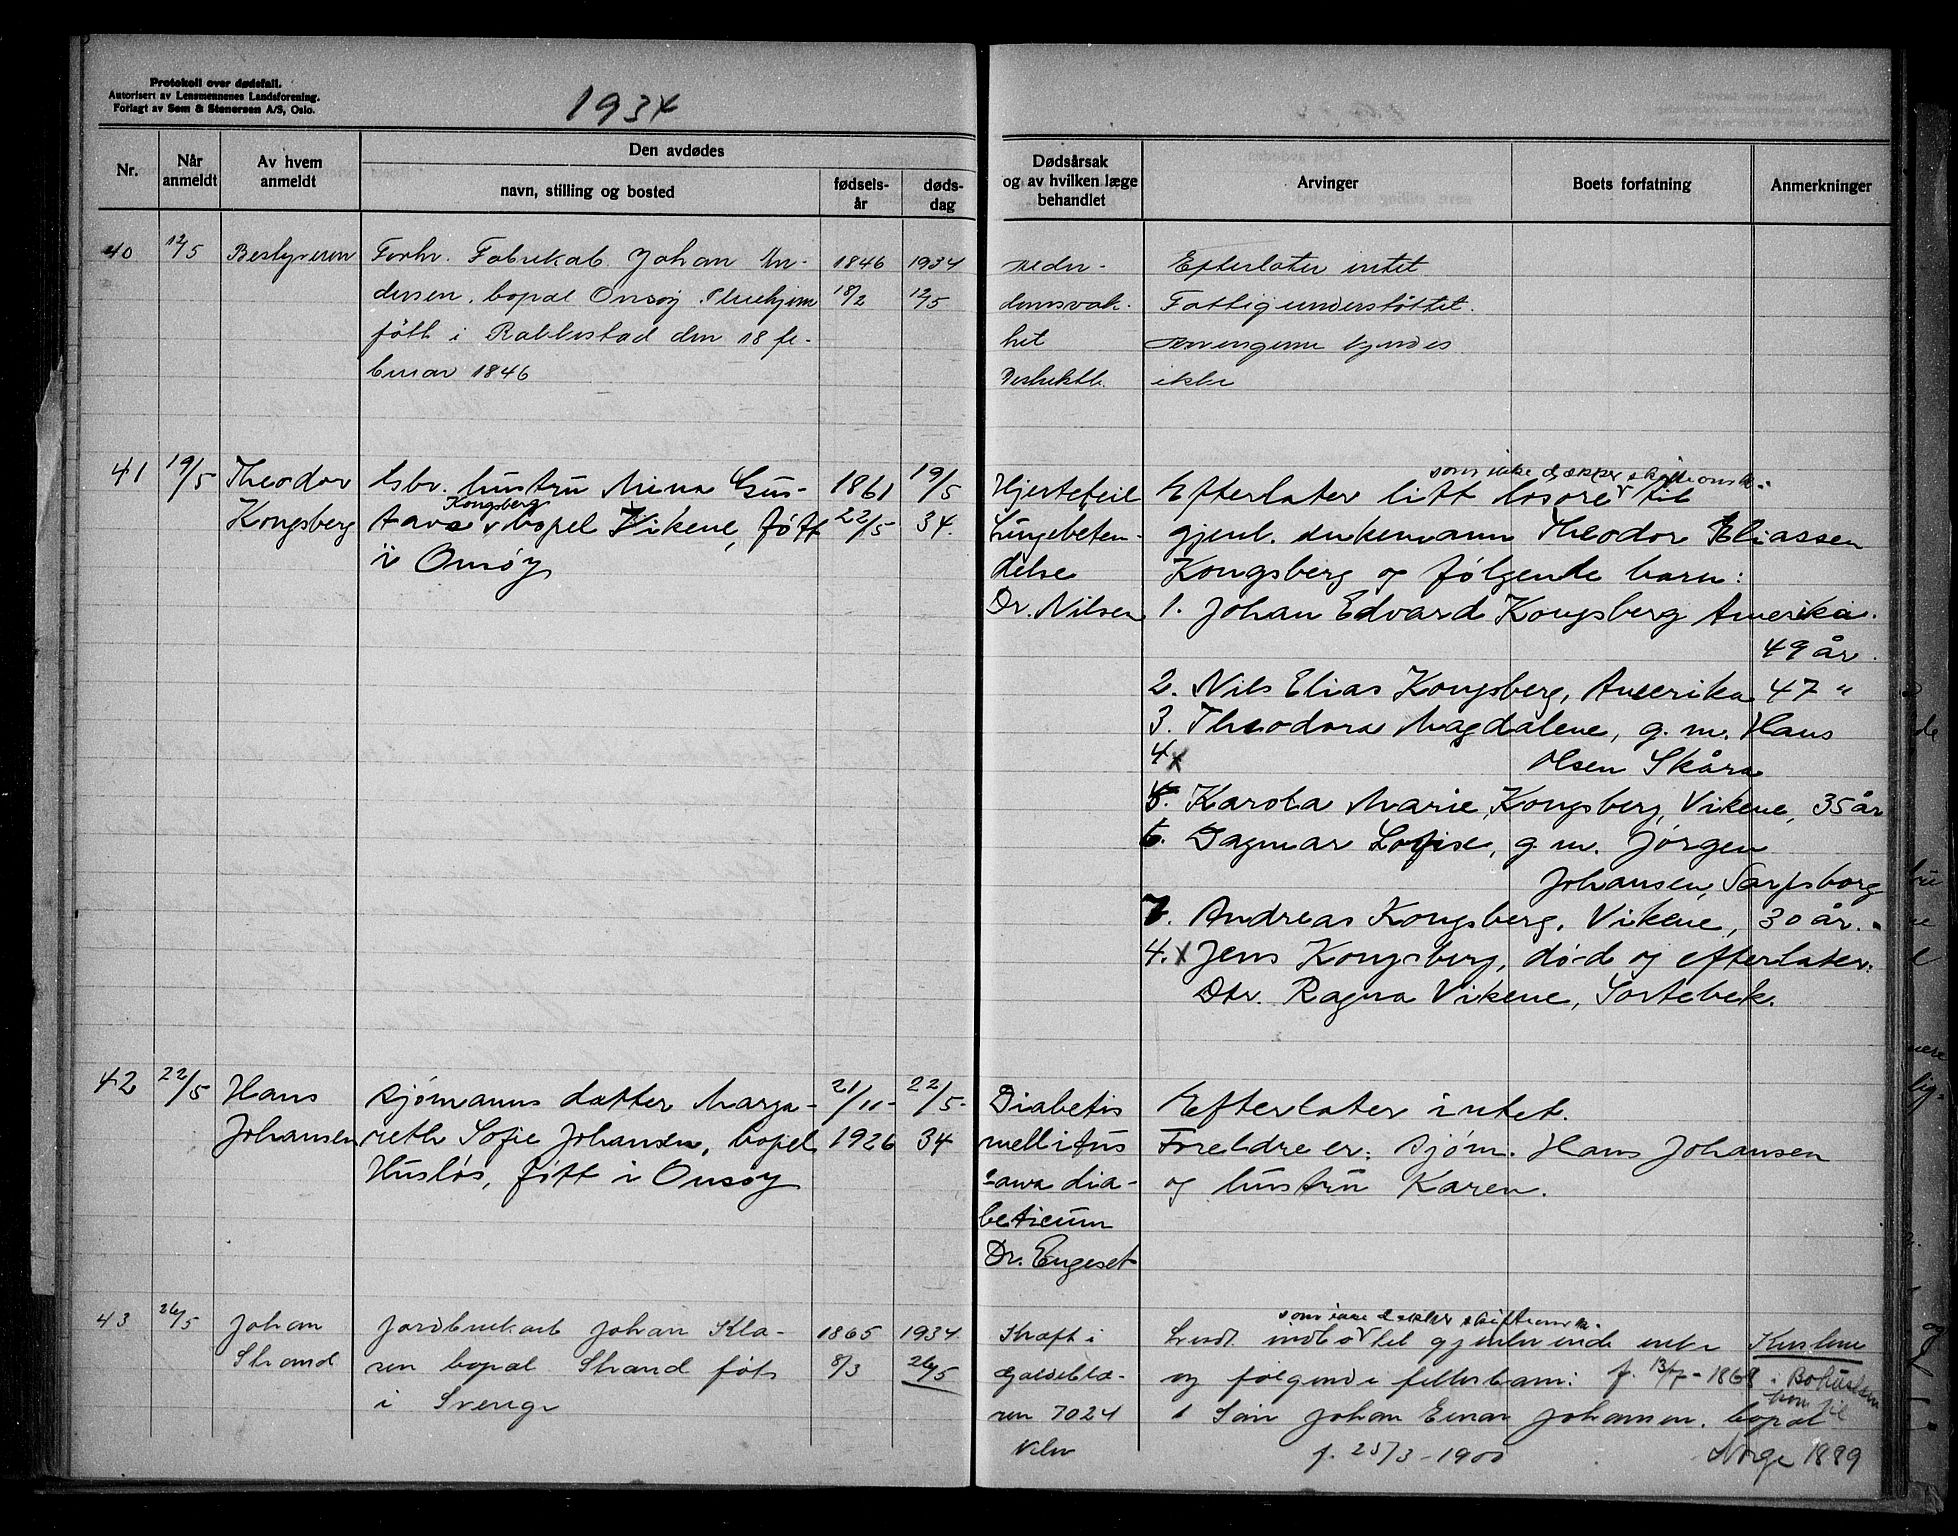 Protokoll over dødsfall.
Autorisert av Lensmennenes Landsforening.
Forlagt av Sem & Stenersen A/S, Oslo.
1934
Nr.
Når anmeldt
Av hvem anmeldt
Den avdødes
navn, stilling og bosted
fødsels-år
døds-dag
Dødsårsak
og av hvilken læge
behandlet
Arvinger
Boets forfatning
Anmerkninger
40 12/5 Bestyreren Forhv. Fabrikarb. Johan An- 1846 1934
dersen, bopæl Onsøy Pleiehjem 18/2 12/5
født i Rakkestad den 18 fe-
bruar 1846
alder-
domsvak-
het
Distriktl.
Efterlater intet
Fattigunderstøttet.
Arvingerne kjendes
ikke
41 19/5 Theodor Gbr. hustru Mina Gus- 1861 19/5
Kongsberg
Kongsberg tava v bopel Vikene, født 22/5 34.
i Onsøy
Hjertefeil
Lungebeten-
delse
Dr. Nilsen
som ikke dækker skifteomk.
Efterlater litt løsøre v til
gjenl. enkemann Theodor Eliassen
Kongsberg og følgende barn:
1. Johan Edvard Kongsberg Amerika.
49 år.
2. Nils Elias Kongsberg, Amerika 47 "
3. Theodora Magdalene, g. m. Hans
4 x Olsen Skåra
5. Karola Marie Kongsberg, Vikene, 35 år
6. Dagmar Lovise, g. m. Jørgen
Johansen, Sarpsborg
7. Andreas Kongsberg, Vikene, 30 år.
4. x Jens Kongsberg, død og efterlater:
Dtr. Ragna Vikene, Sortebek.
42 22/5 Hans Sjømanns datter Marga- 21/11- 22/5-
Johansen reth Sofie Johansen, bopel 1926 34
Husløs, født i Onsøy
Diabetis
mellitus
coma dia-
beticum
Dr. Engeset
Efterlater intet.
Foreldre er: Sjøm. Hans Johansen
og hustru Karen.
43 26/5 Johan Jordbrukarb Johan Kla- 1865 1934
Strand ren bopæl Strand født 8/3 26/5
i Sverige
Kræft i
galdeblæ-
ren 7024
som ikke dækker skifteomk.
indbo v til gjenlevende enke Kirstine
og følgende fellesbarn: f. 13/7-1868 i Bohuslen
kom til
1 Søn Johan Einar Johansen, bopæl
f. 25/3-1900 Norge 1889